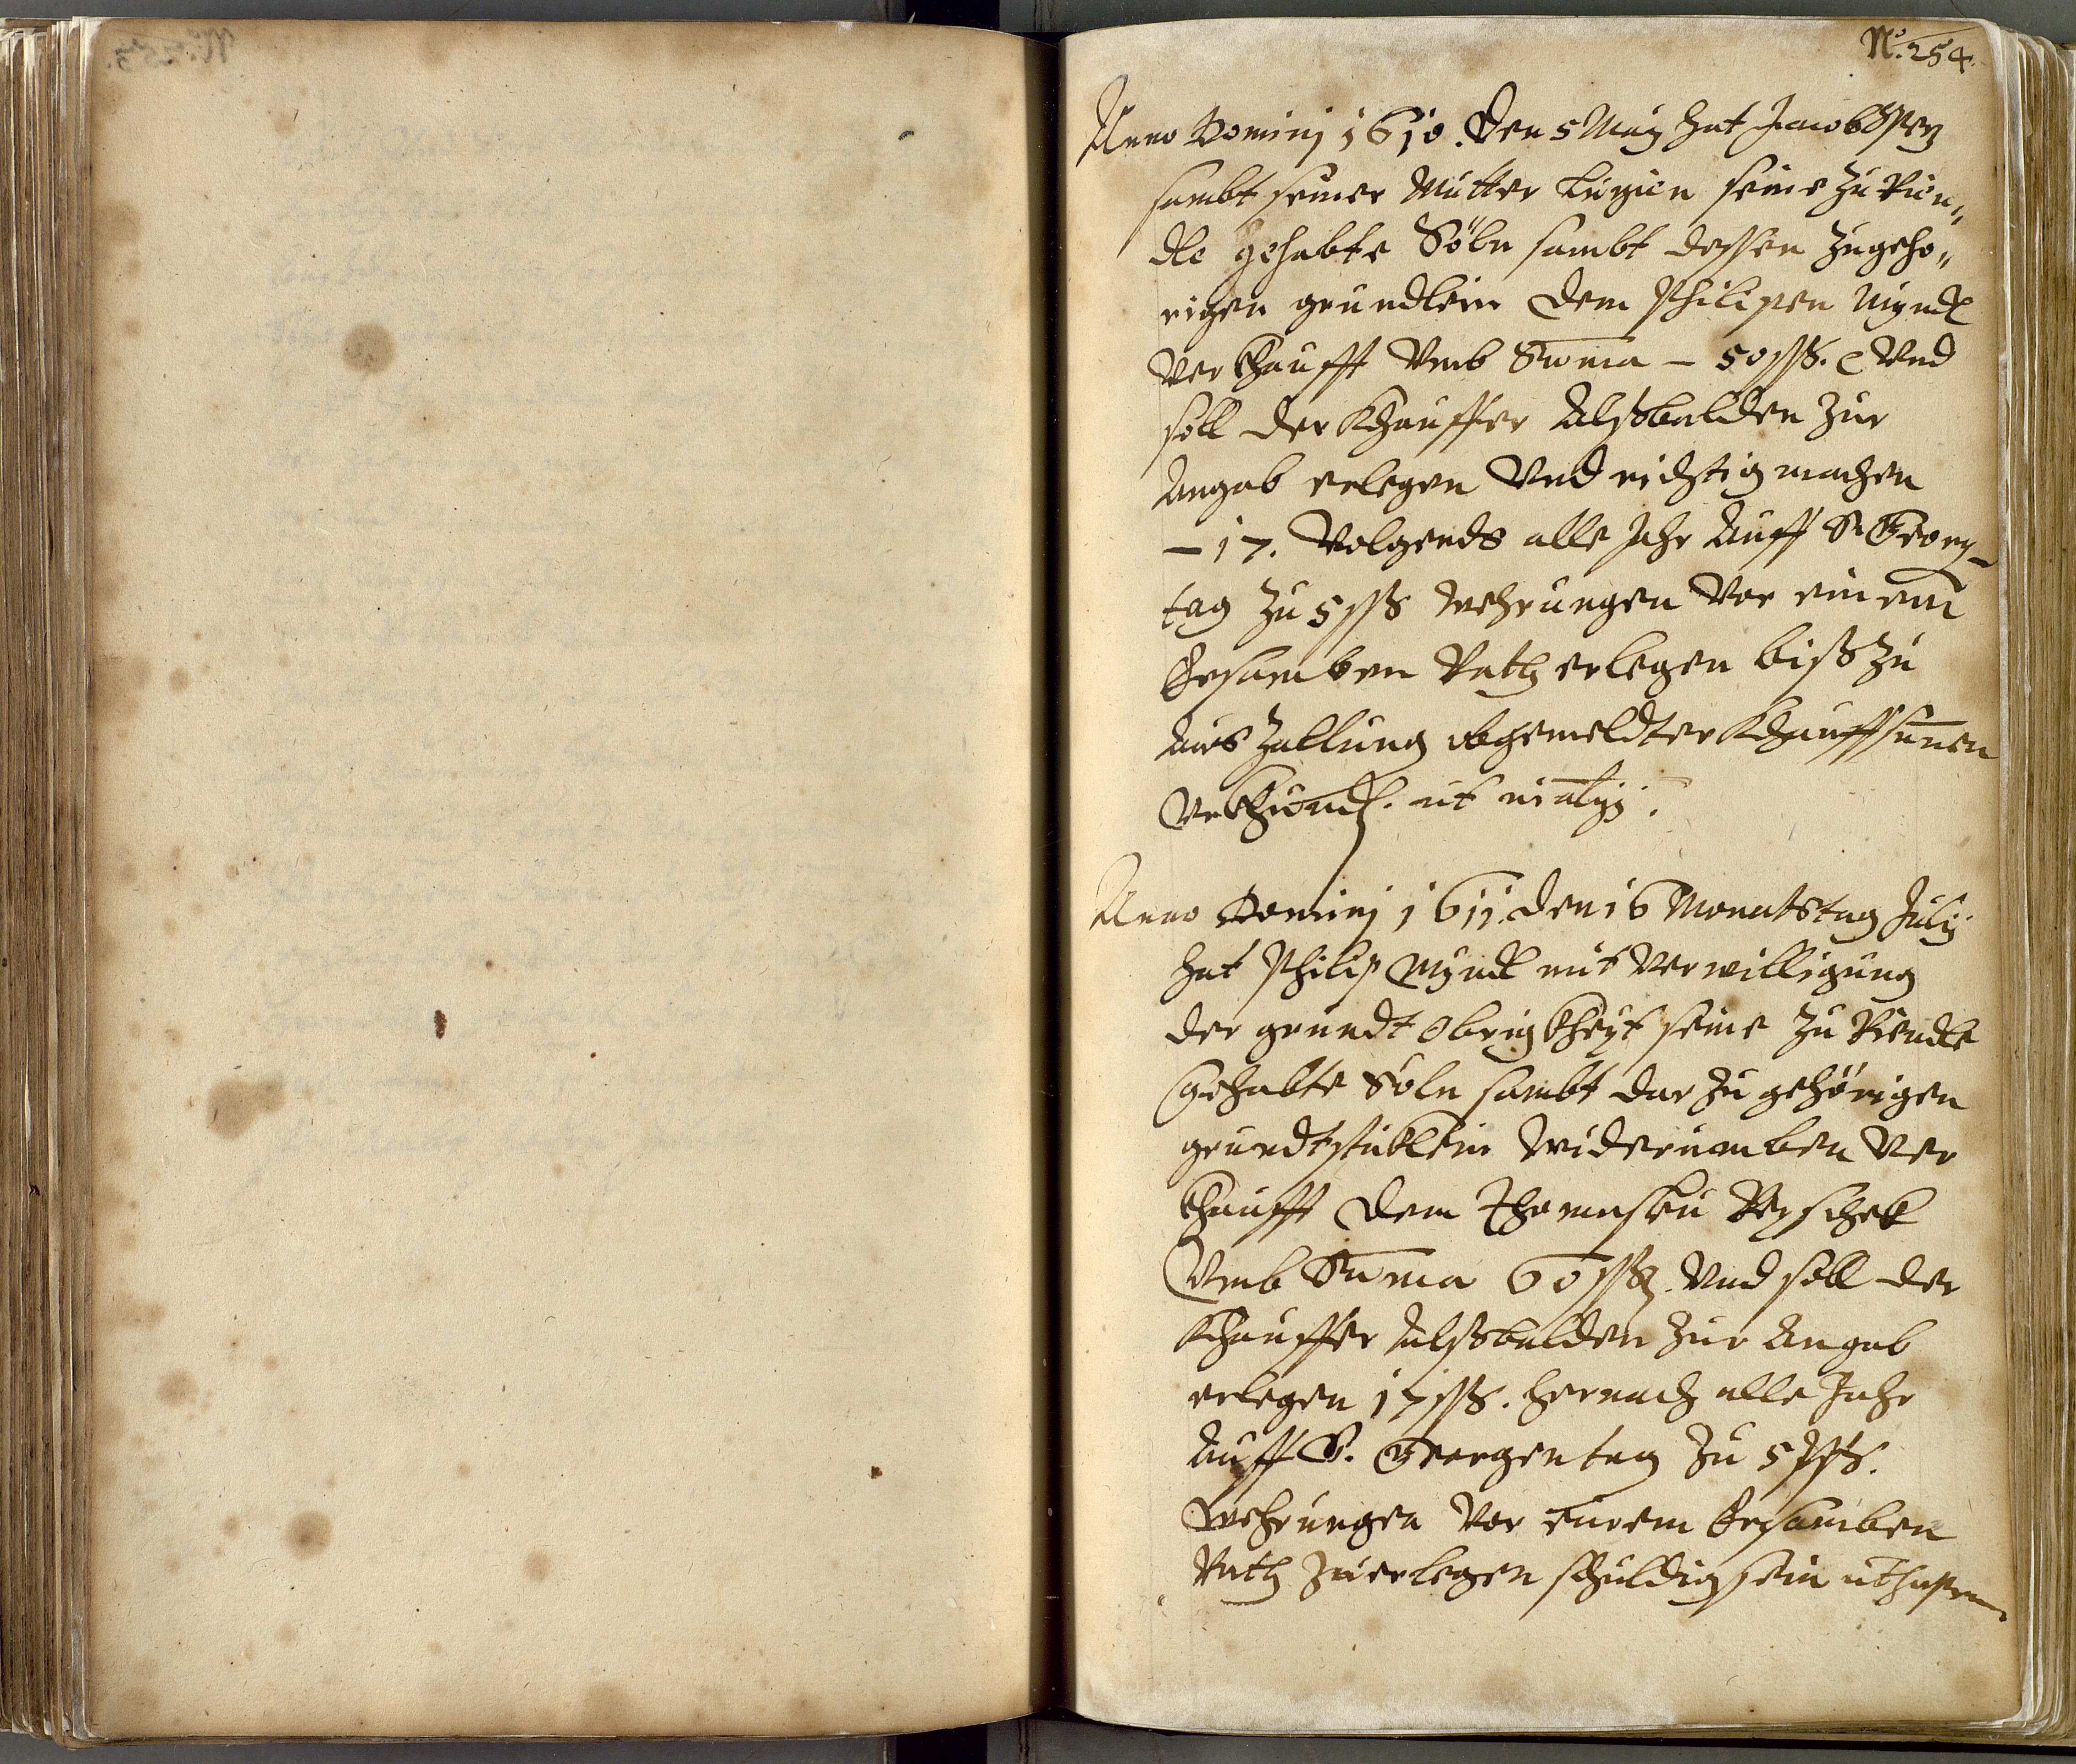 Nº. 254.
Anno Dominj 1610. den 5 Maÿ hat Jacob
sambt seiner Mutter Luzien seine zu Rien„
dle gehabte Söln sambt dessen zugeho„
rigen grundlein dem Philipen Mÿndl
verkhaufft vmb Suma – 50 ßß. vnd
soll der Khauffer Alßbalden zur
Angab erlegen vnd richtig machen
– 17. Volgends alle Jahr Auff S. Georg-
tag zu 5 ßß wehrungen vor einem
Ersamben Rath erlegen biß zu
Aus Zallung obgemeldter Khauffsumen
Vrkhundt. ut
Anno Dominj 1611. den 16 Monatstag Julÿ
hat Philip Mÿndl mit verwilligung
der grundt Obrigkheÿt seine zu Riendle
Gehabte Söln sambt darzu gehörigen
grundtstuklein widerumben ver
khaufft dem Thomaßen Reschek
Vmb Suma 60 ßß. vnd soll der
Khauffer Alßbalden zur Angab
erlegen 17 ßß. hernach alle Jahr
Auff S. Georgen tag zu 5 ßß.
wehrungen vor einem Ersamben
Rath zuerlegen schuldig sein ut supra